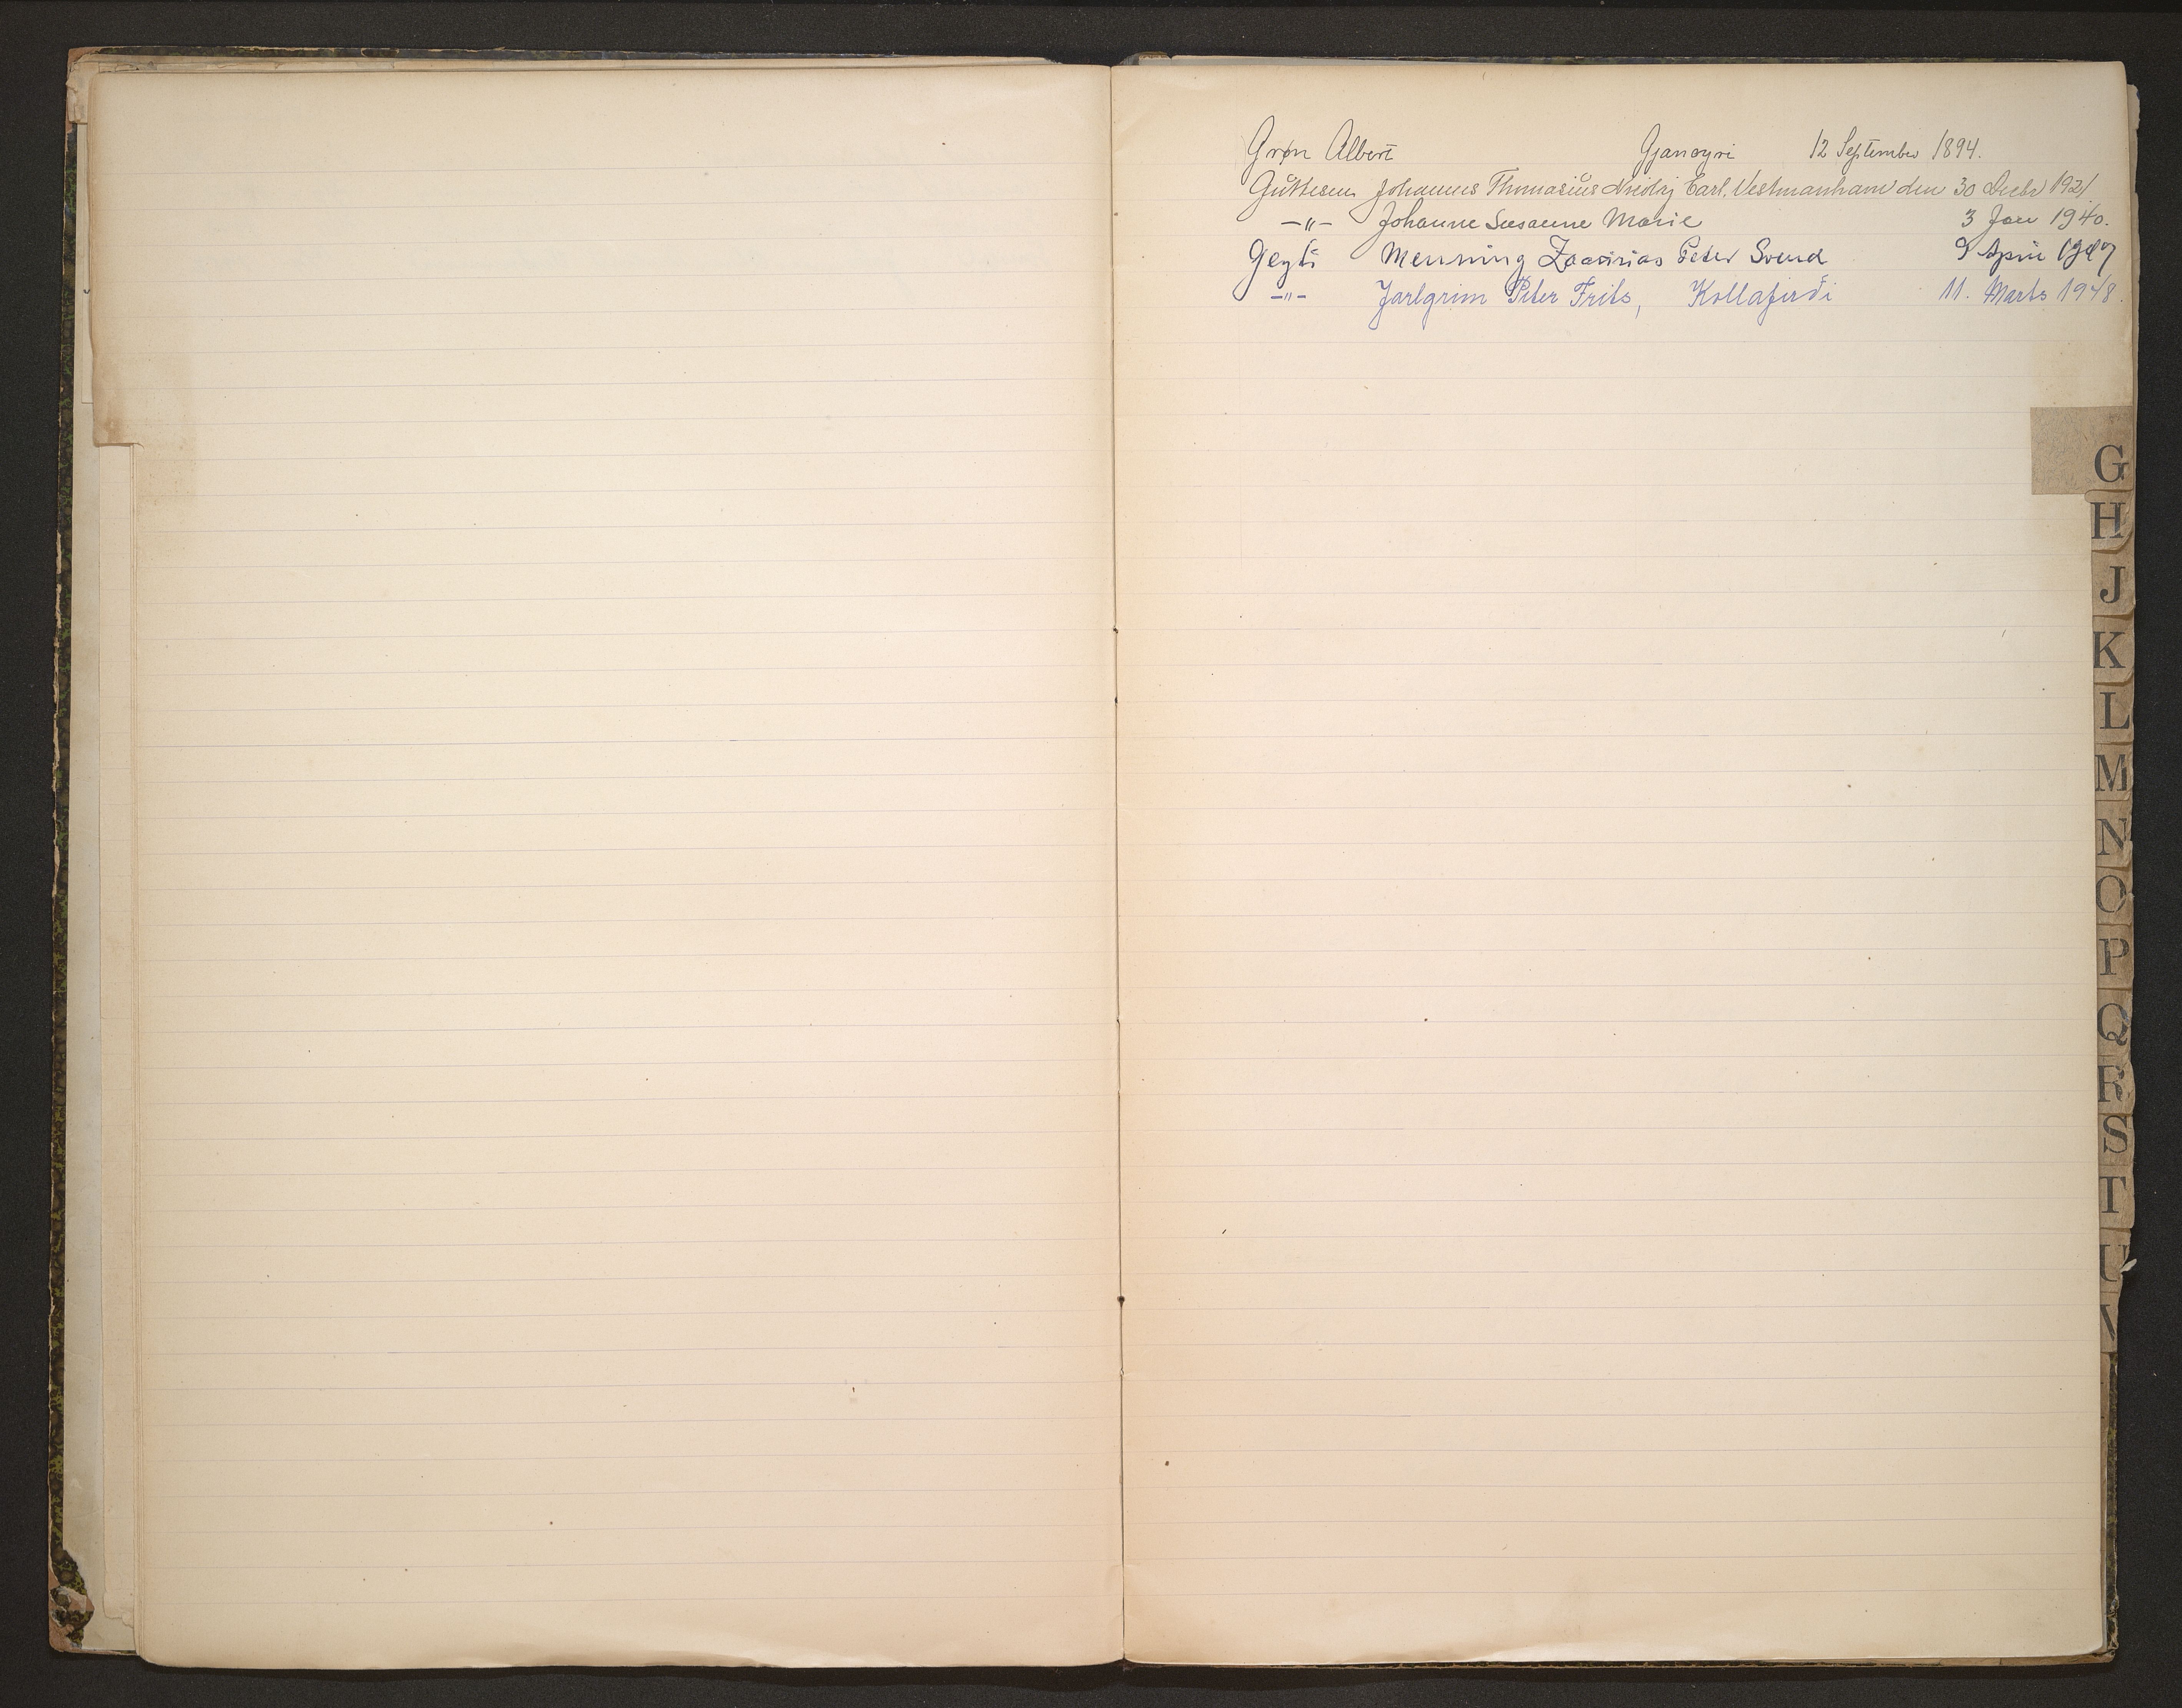 Grøn Albert Gjanoyri 12 September 1894.
Guttesen Johannes Thomasius Nicolaj Earl. Vestmanhavn den 30 Decbr 1921
-"- Johanne Susanne Marie 3 Jan 1940.
Geyti Menning Zacarias Peter Svend 9 April 1947
-"- Jarlgrim Peter Frits, Kollafirði 11. Marts 1948.
G
H
J
K
L
M
N
O
P
Q
R
S
T
U